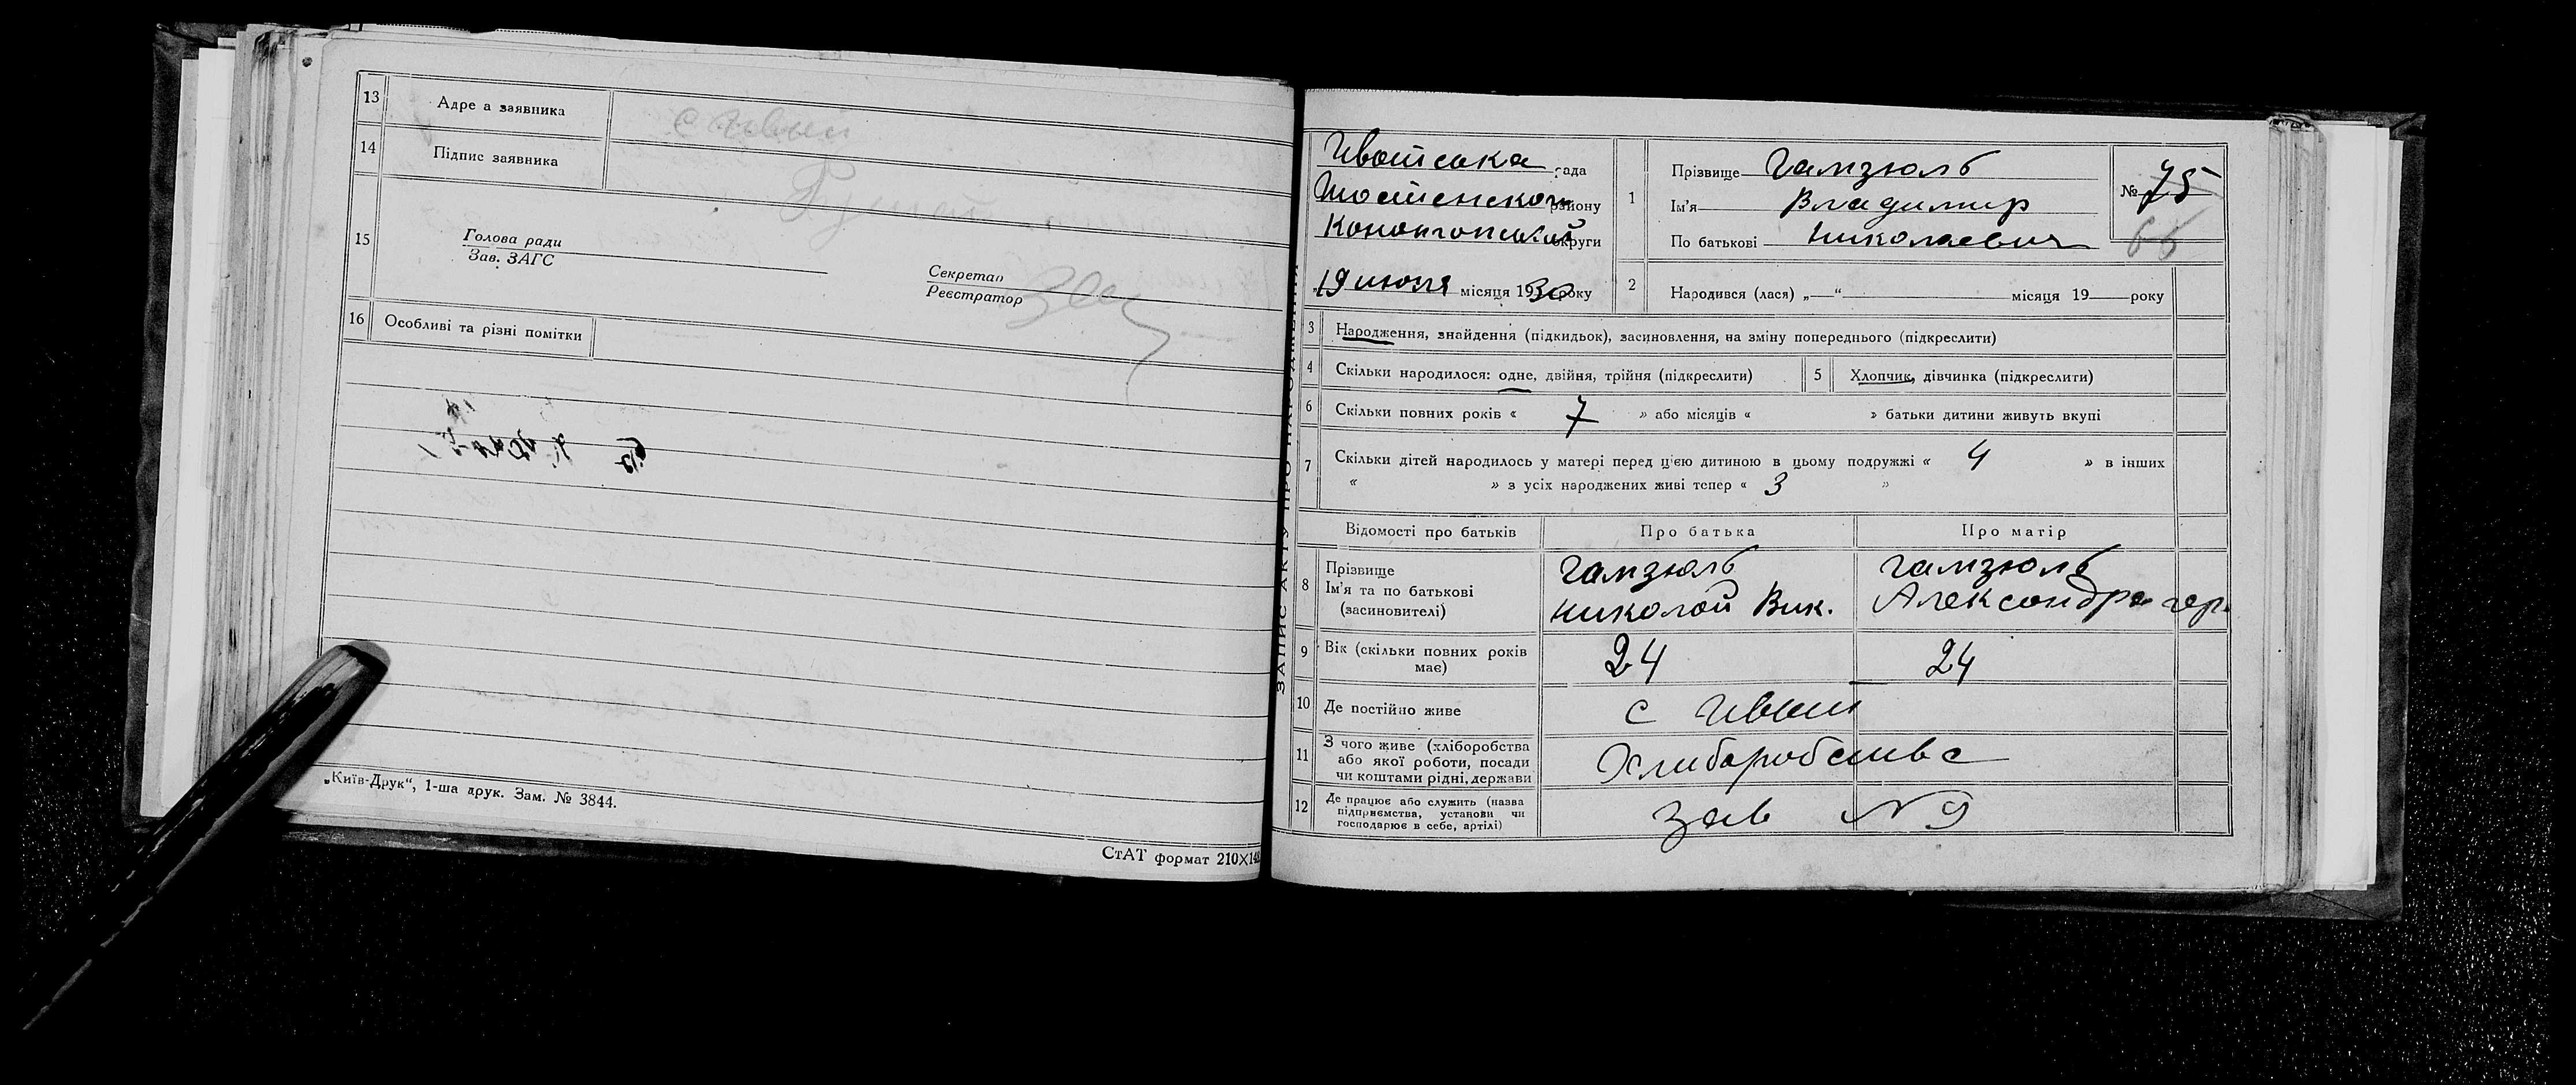 13 Адре а заявника с Ивот
14 Підпис заявника
15 Голова ради
Зав. ЗАГС
Секретар
Реєстратор
16 Особливі та різні помітки
„Київ-Друк“, 1-ша друк. Зам. № 3844.
СтАТ формат 210×14
ЗАПИС АКТУ ПРО НАРОДЖЕННЯ
Ивотсока рада
району
округи
19 июля місяця 1930 року
1 Прізвище Гамзюль
Ім'я Владимир
По батькові Николаевич
№ 75
66
2 Народився (лася) „—“ місяця 19 року
3 Народження, знайдення (підкидьок), засиновлення, на зміну попереднього (підкреслити)
4 Скільки народилося: одне, двійня, трійня (підкреслити)
5 Хлопчик, дівчинка (підкреслити)
6 Скільки повних років « 7 » або місяців « » батьки дитини живуть вкупі
7 Скільки дітей народилось у матері перед цією дитиною в цьому подружжі « 4 » в інших
« » з усіх народжених живі тепер « 3 »
Відомості про батьків Про батька Про матір
8 Прізвище Гамзюль Гамзюль
Ім'я та по батькові Николай Вик. Александра гер.
(засиновителі)
9 Вік (скільки повних років 24 24
має)
10 Де постійно живе с Ивот
11 З чого живе (хліборобства
або якої роботи, посади Хлиборобство
чи коштами рідні, держави
12 Де працює або служить (назва
підприємства, установи чи зав N 9
господарює в себе, артілі)